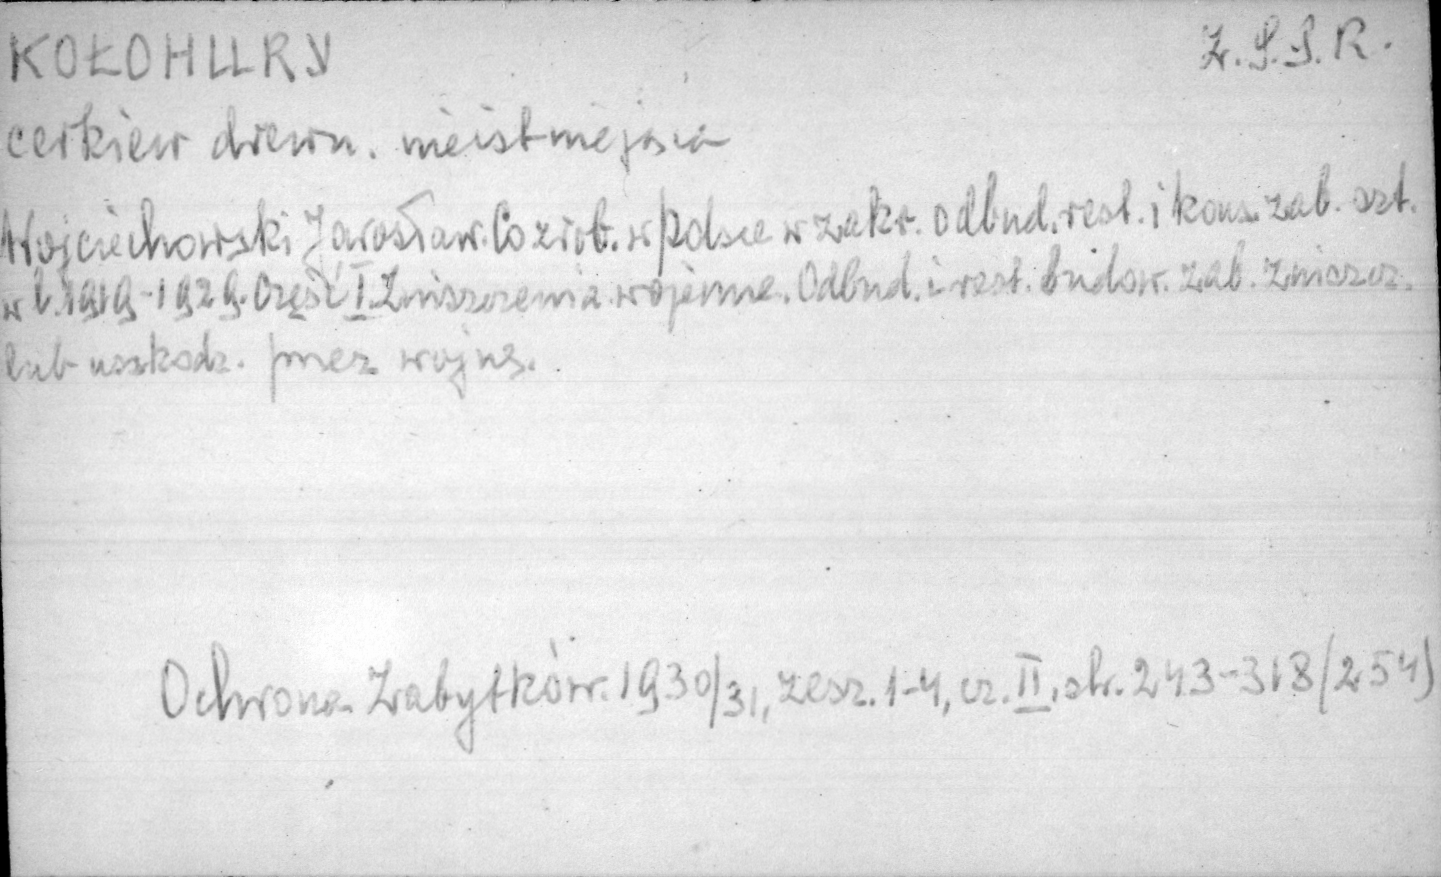 KOŁOHURY Z.S.S.R.
cerkiew drewn. nieistniejąca
Wojciechowski Jarosław. Co zrob. w Polsce w zakr. odbud. rest. i kons. zab. szt.
w l. 1919-1929. Część I. Zniszczenia wojenne. Odbud. i rest. budow. zab. zniszcz.
lub uszkodz. przez wojnę.
Ochrona Zabytków. 1930/31, zesz. 1-4, cz. II, str. 243-318 (254)